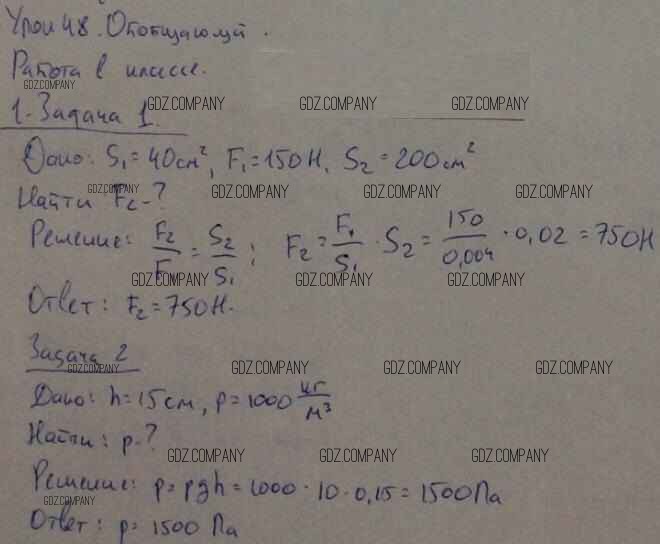 Урок 48. Обобщающий.
Работа в классе.
GDZ.COMPANY
GDZ.COMPANY GDZ.COMPANY GDZ.COMPANY
1. Задача 1.
Дано: S₁ = 40 см², F₁ = 150 Н, S₂ = 200 см²
GDZ.COMPANY GDZ.COMPANY GDZ.COMPANY GDZ.COMPANY
Найти F₂ - ?
Решение: F₂/F₁ = S₂/S₁; F₂ = F₁/S₁ · S₂ = 150/0,004 · 0,02 = 750 Н
GDZ.COMPANY GDZ.COMPANY GDZ.COMPANY
Ответ: F₂ = 750 Н.
Задача 2
GDZ.COMPANY GDZ.COMPANY GDZ.COMPANY GDZ.COMPANY
Дано: h = 15 см, ρ = 1000 кг/м³
Найти: p - ?
GDZ.COMPANY GDZ.COMPANY GDZ.COMPANY
Решение: p = ρgh = 1000 · 10 · 0,15 = 1500 Па
GDZ.COMPANY
Ответ: p = 1500 Па